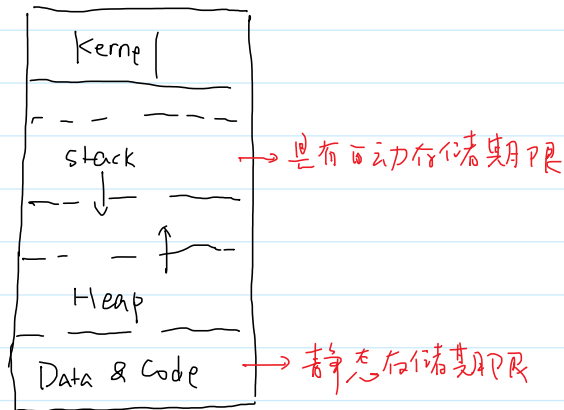 Kernel
Stack
具有自动存储期限
Heap
Data & Code
静态存储期限